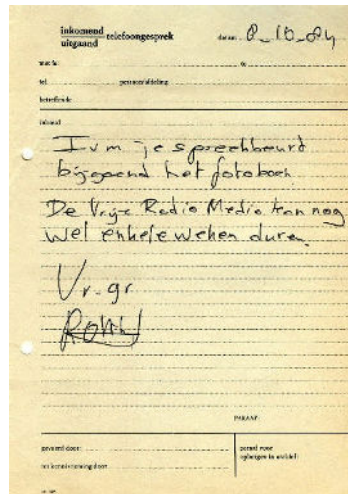 inkomend
uitgaand telefoongesprek datum: 8-10-84
met fa: te
tel. persoon/afdeling
betreffende
inhoud
I v m je spreekbeurt
bijgaand het fotoboek
De Vrije Radio Media kan nog
wel enkele weken duren.
Vr. gr
PARAAF:
gevoerd door: paraaf voor
opbergen in archief:
ter kennisneming door: